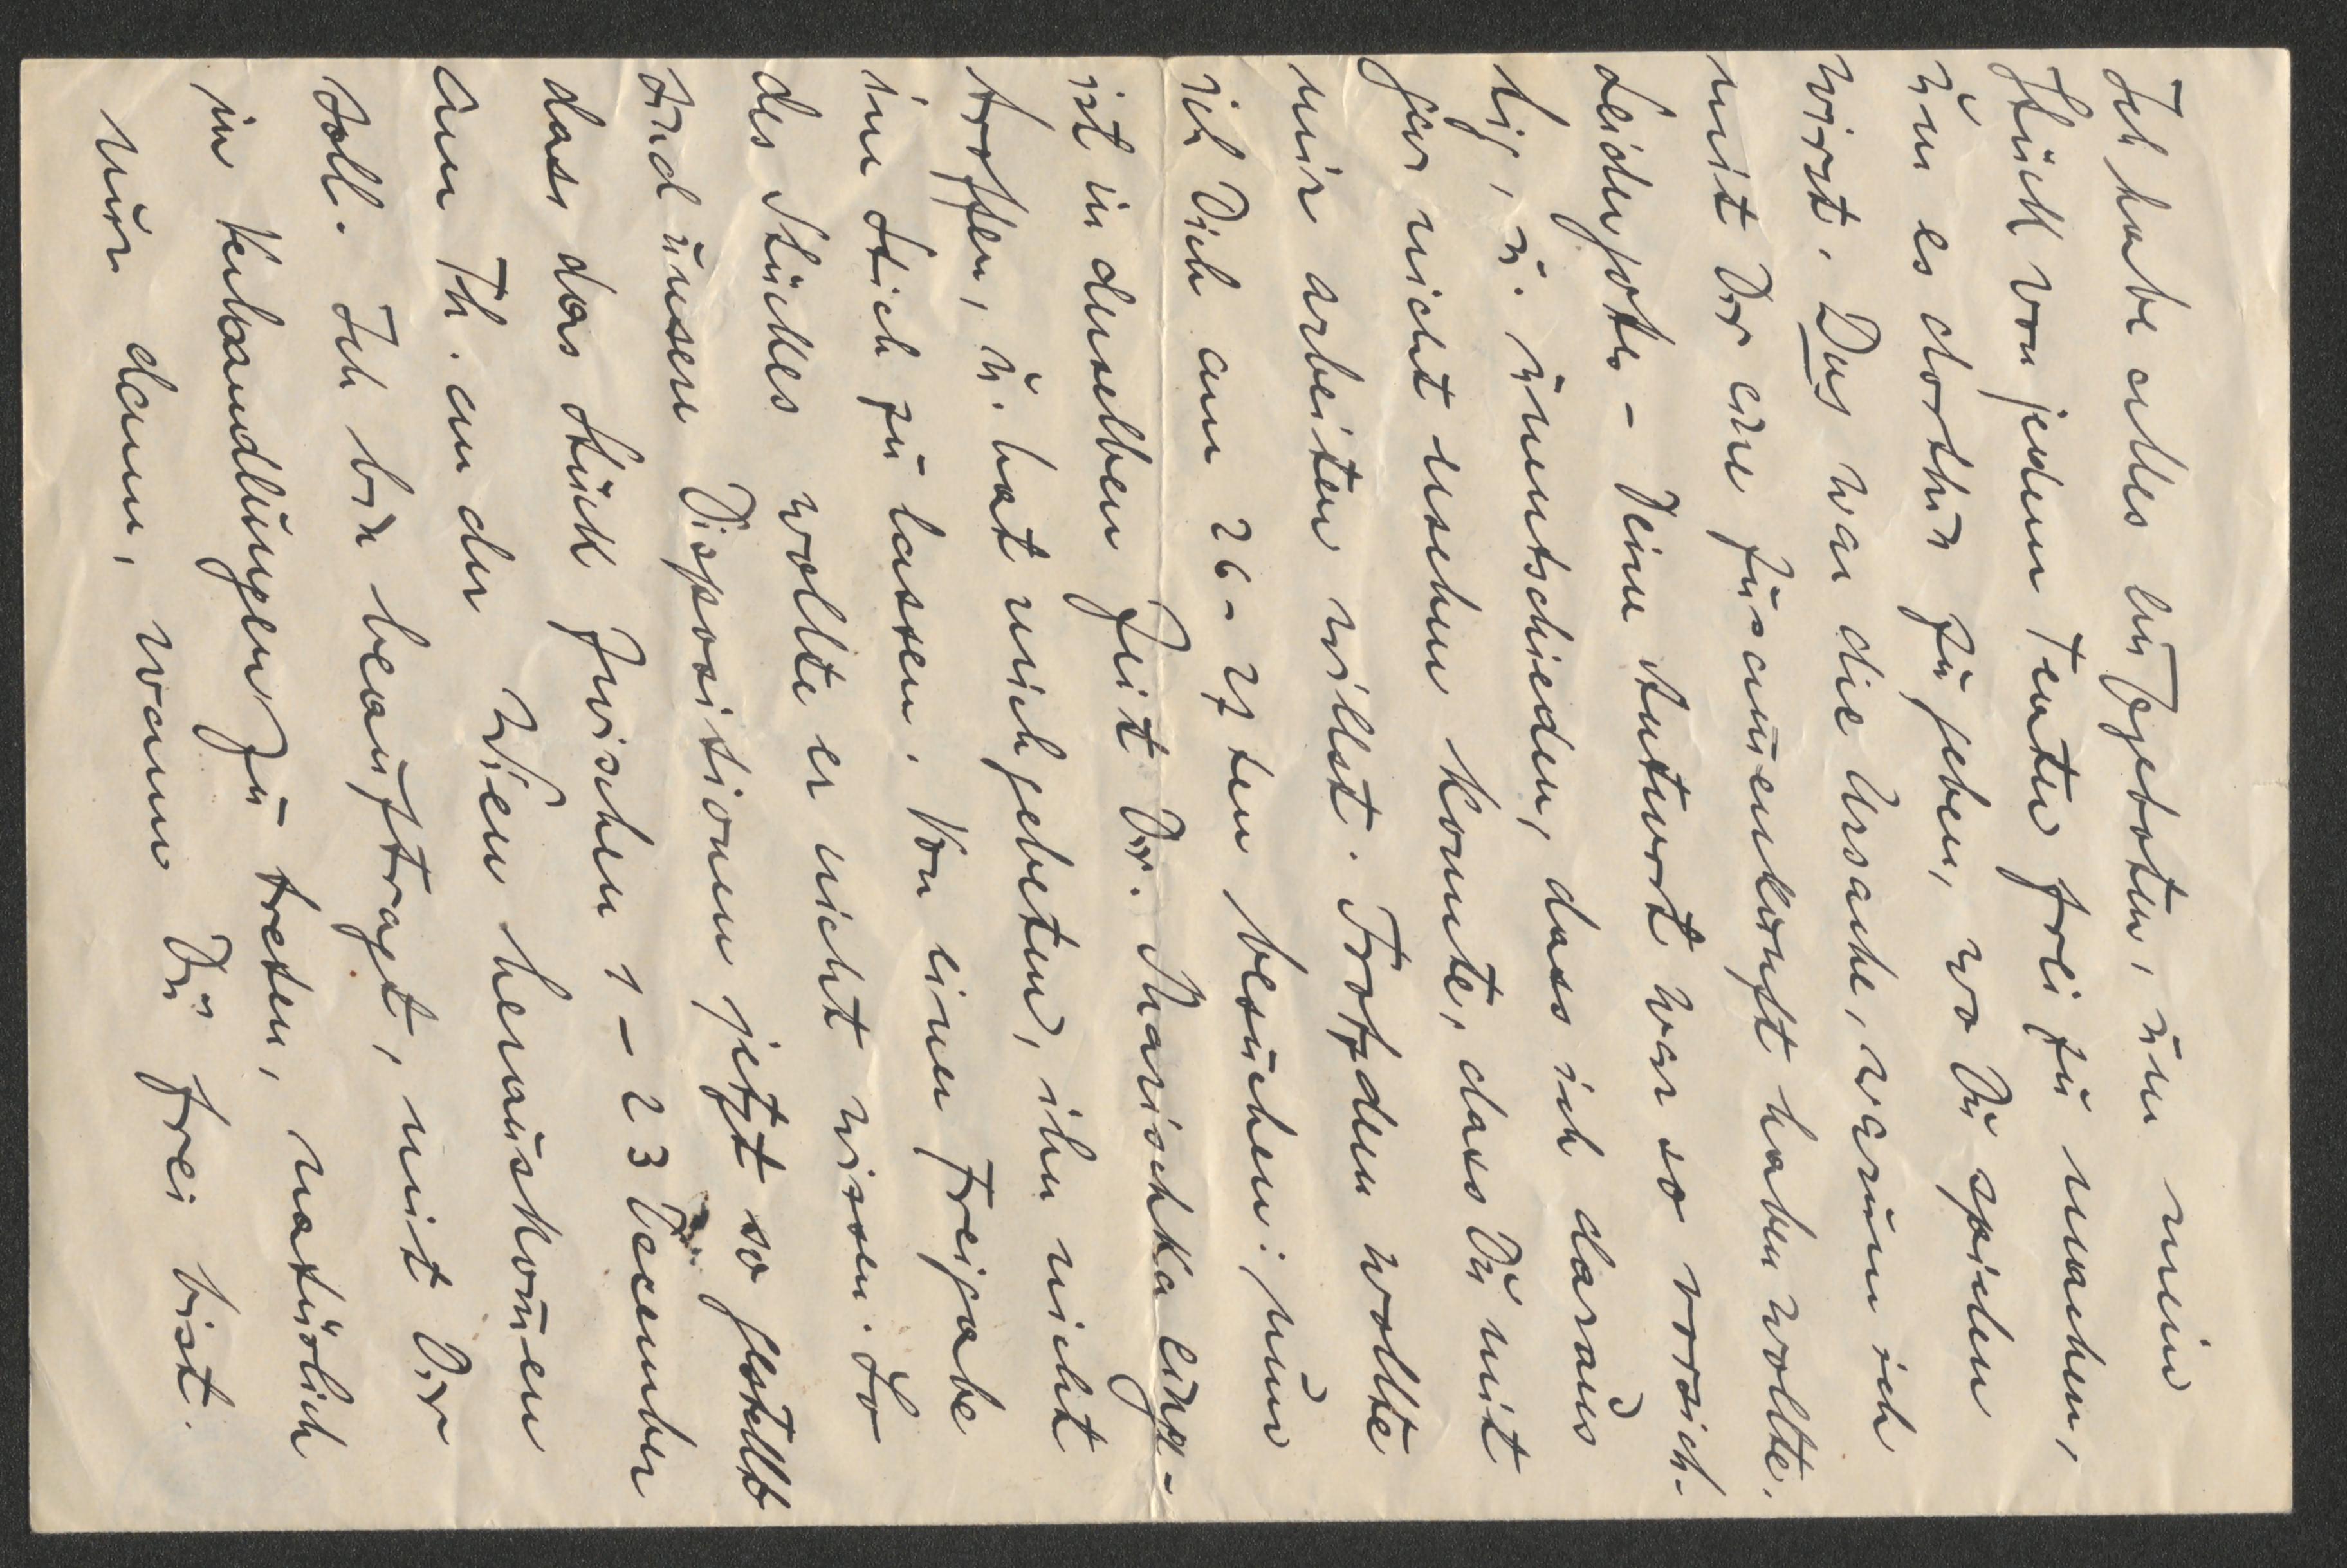 Ich habe alles aufgeboten, um mein
Stück von jedem Teater frei zu machen,
um es dorthin zu geben, wo Du spielen
wirst. Das war die Ursache, warum ich
mit Dir eine Zusam̅enkunft haben wollte.
Leidergotts – Deine Antwort war so vorsich-
tig, u. unentschieden, dass ich daraus
gar nicht ersehen konnte, dass Du mit
mir arbeiten willst. Trotzdem wollte
ich Dich am 26-27ten besuchen: nun
ist in derselben Zeit Dr. Marischka einge-
troffen, u. hat mich gebeten, ihn nicht
im Stich zu lassen. Von einer Freigabe
des Stückes wollte er nicht wissen. So
sind unsere Dispositionen jetzt so gestellt
dass das Stück zwischen 1–23 December
am Th. an der Wien herauskom̅en
soll. Ich bin beauftragt, mit Dir
in Verhandlungen zu treten, natürlich
nur dann, wenn Du frei bist.